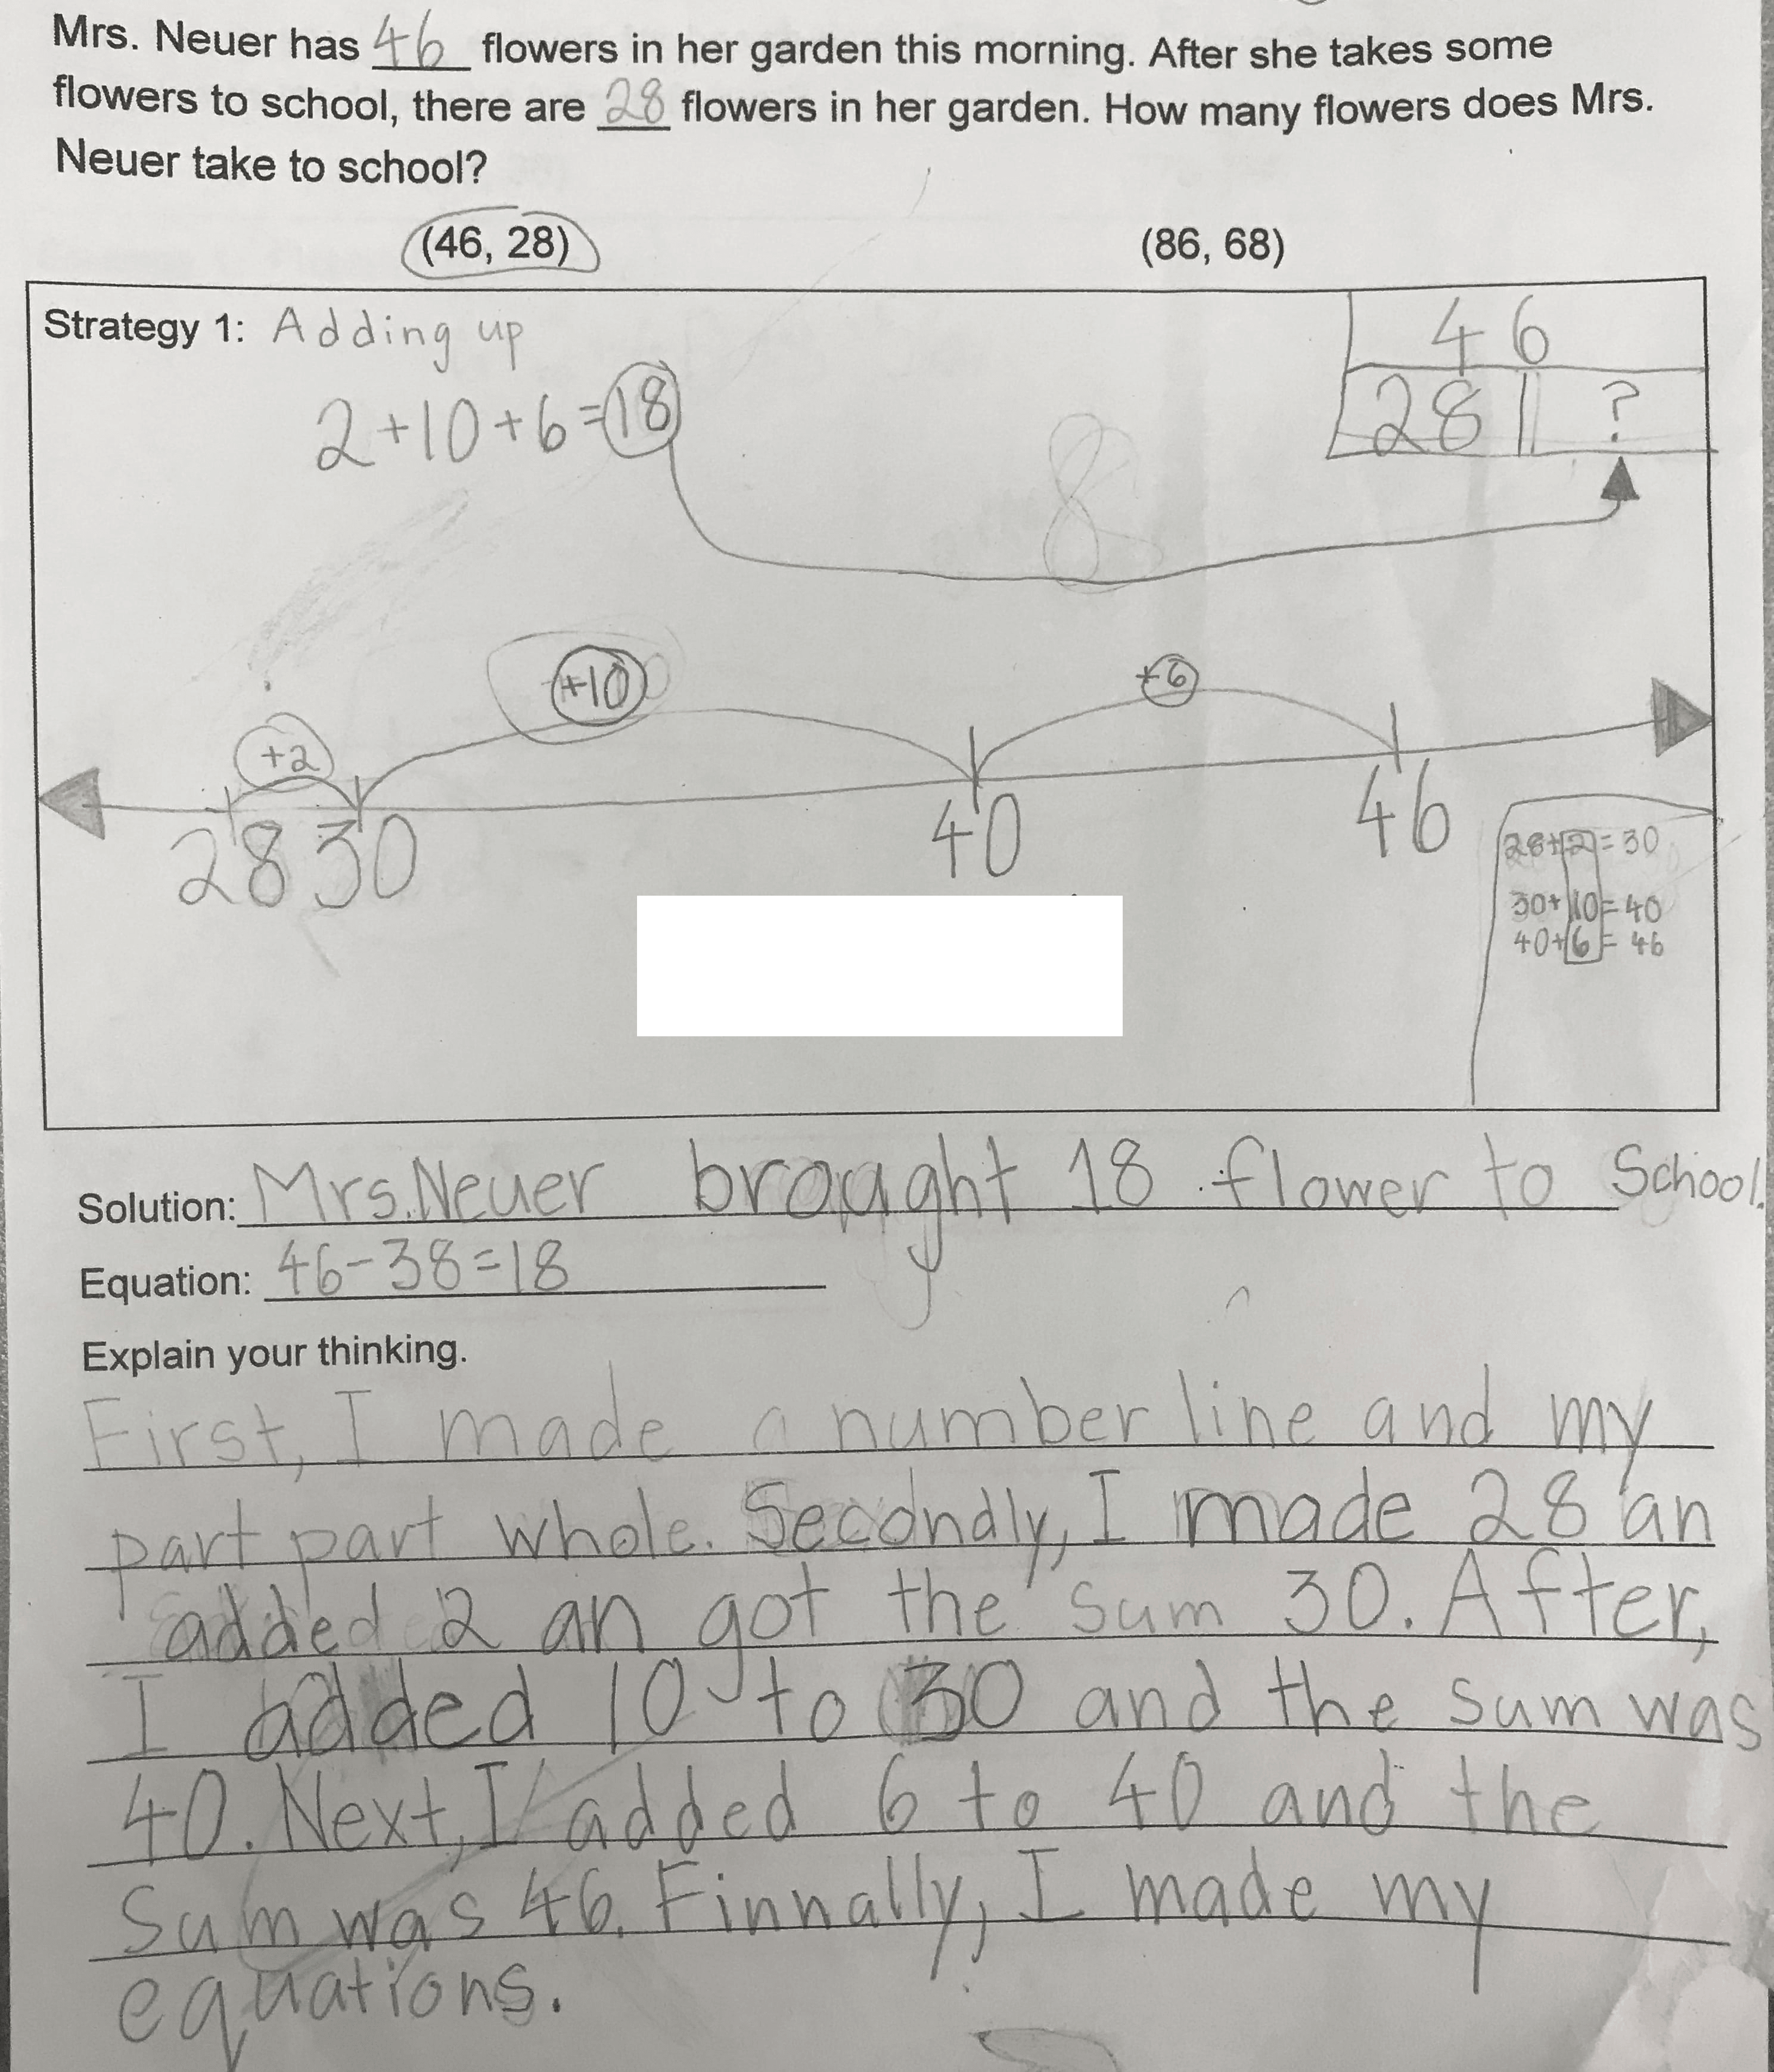 Mrs. Neuer has 46 flowers in her garden this morning. After she takes some
flowers to school, there are 28 flowers in her garden. How many flowers does Mrs.
Neuer take to school?
(46, 28) (86, 68)
Strategy 1: Adding up
46
28 ?
2+10+6=18
8
+2 +10 +6
28 30 40 46
28+2=30
30+10=40
40+6=46
Solution: Mrs. Neuer brought 18 flower to School.
Equation: 46-38=18
Explain your thinking.
First, I made a number line and my
part part whole. Secondly, I made 28 an
added 2 an got the sum 30. After,
I added 10 to 30 and the sum was
40. Next, I added 6 to 40 and the
Sum was 46. Finnally, I made my
equations.